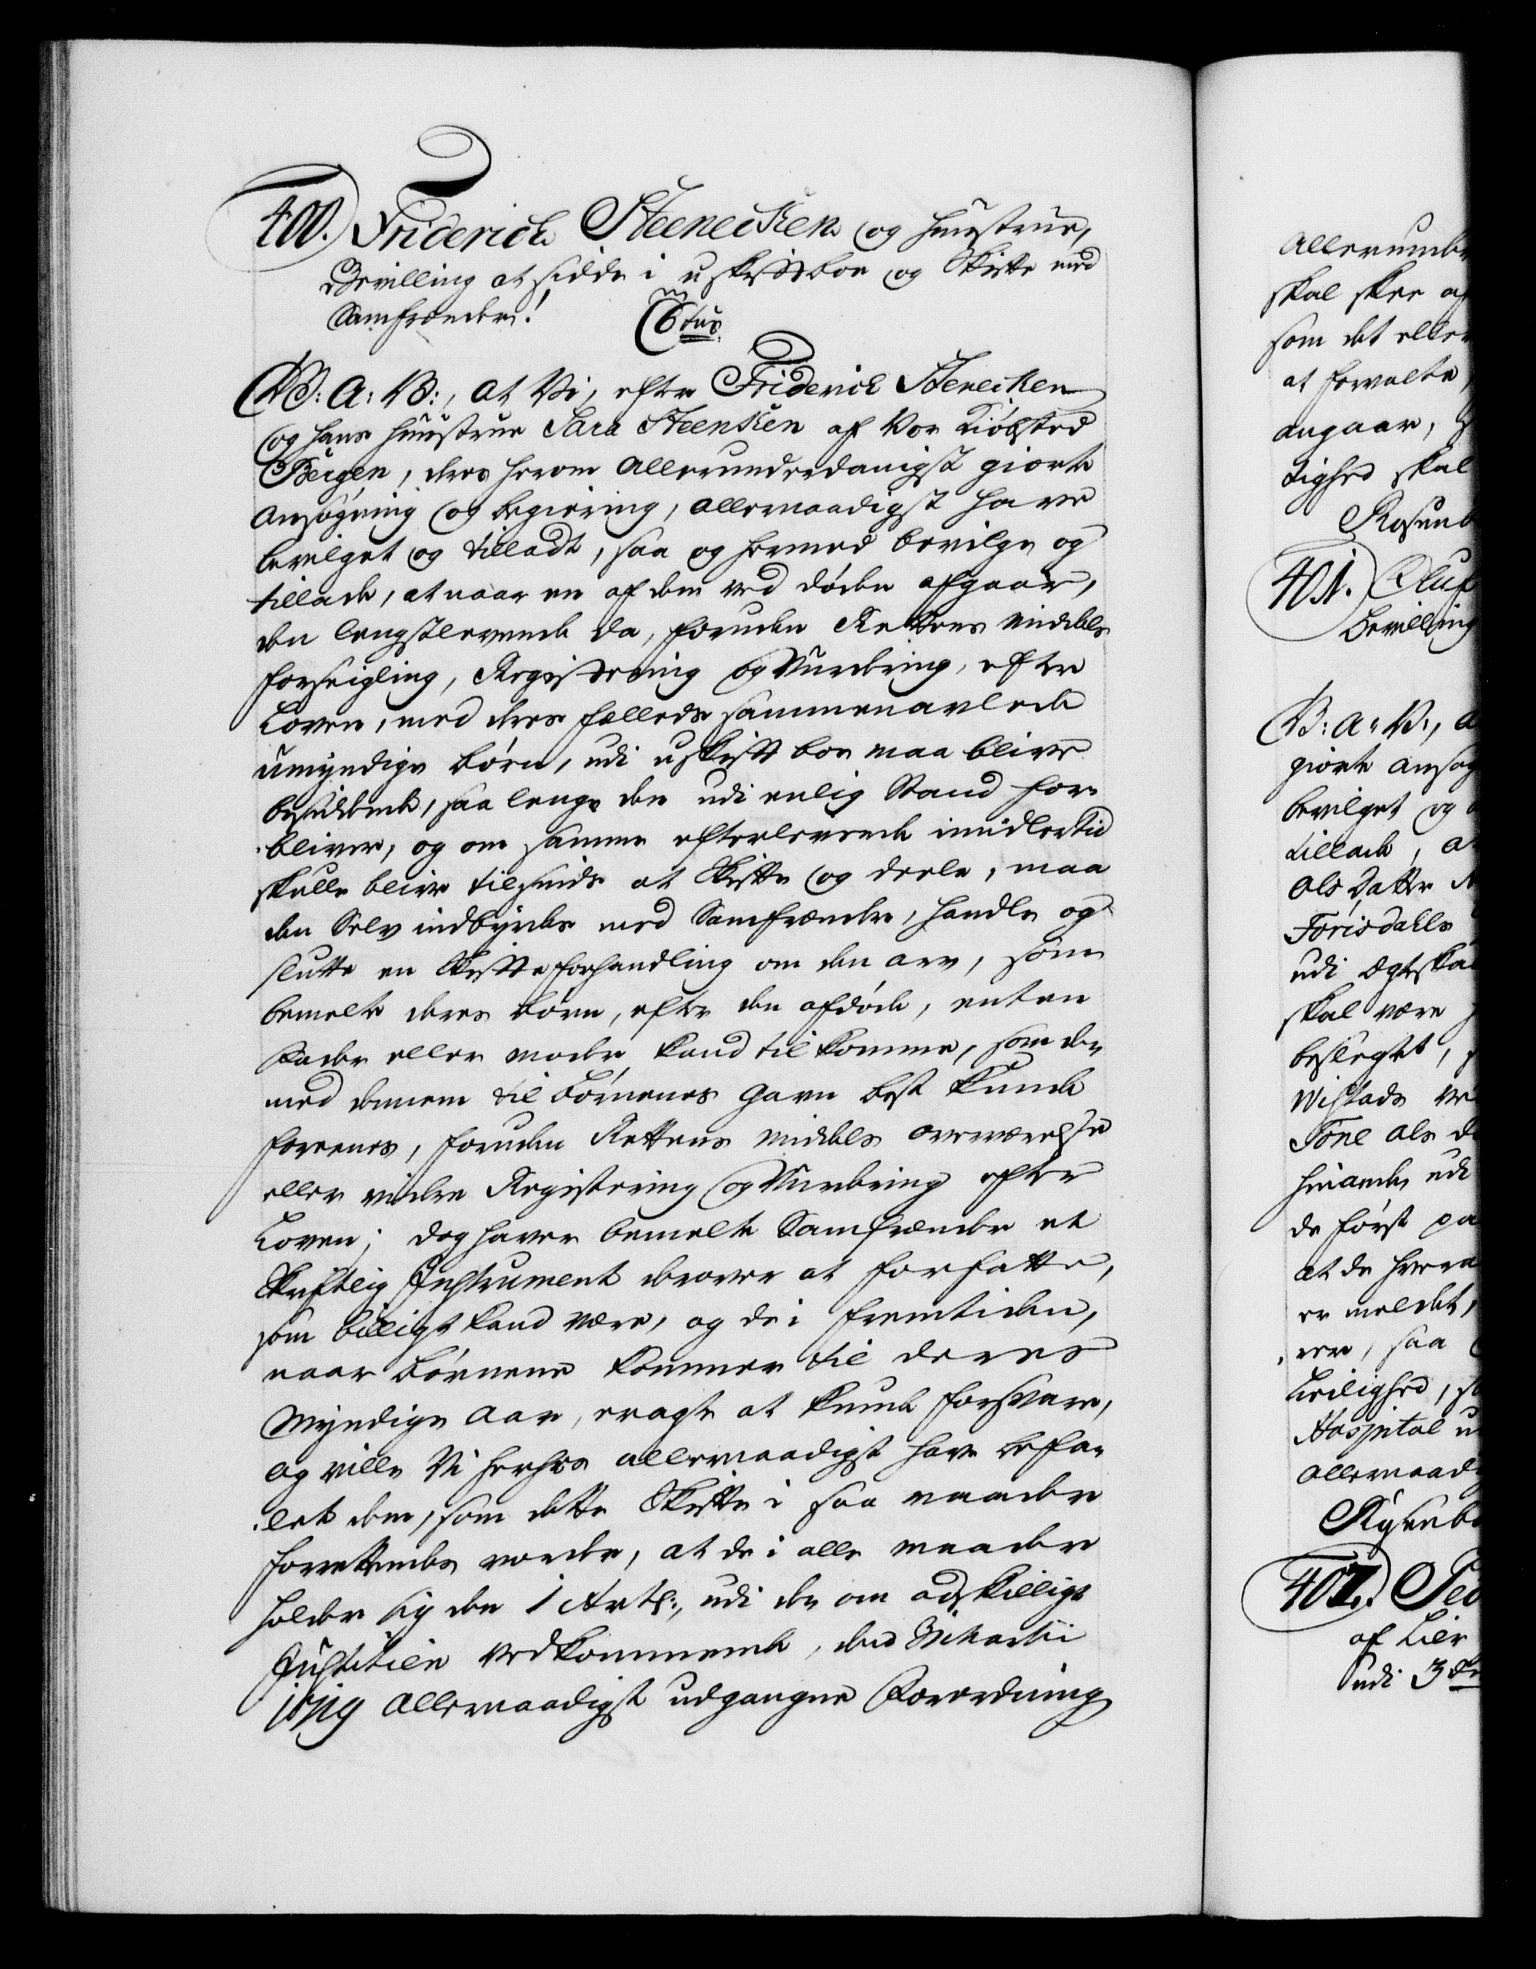 400. Friderich Steenecken og hustrue,
Bevilling at sidde i uskiftboe og Skifte med
Samfrænder!
Ctus
W: A: V:, at Vi, efter Friderich Stenecken
og hans hustrue Sara Steenken af Vor Kiøbsted
Bergen, deres herom allerunderdanigst giorte
ansøgning og begiering, allernaadigst have
bevilget og tilladt, saa og hermed bevilge og
tillade, at naar en af dem ved døden afgaar,
den lengstlevende da, foruden Rettens middels
forseigling, Registering og Vurdering, efter
Loven, med deres fælleds sammenavlede
umyndige børn, udi uskift boe maa blive
besiddende, saa lenge den udi enlig Stand for-
bliver, og om samme efterlevende imidlertid
skulle blive tilsinds at Skifte og deele, maa
den Selv indbyrdes med Samfrænder, handle og
slutte en Skifteforhandling om den arv, som
bemelte deres børn, efter den afdøde, enten
Fader eller moder kand tilkomme, som de
med dennem til børnenes gavn best kunde
foreenes, foruden Rettens middels overværelse
eller videre Registering og Vurdering efter
Loven; dog haver bemelte Samfrænder et
Skriftlig Instrument derover at forfatte,
som billigt kand være, og de i fremtiden,
naar børnene kommer til deres
Myndige Aar, eragte at kunde forsvare,
og ville Vi herhos allernaadigst have befa-
let dem, som dette Skifte i saa maader
forrettendes vorder, at de i alle maader
holder sig den 1 Artl:, udi den om adskilligt
Justitien vedkommende, dend
1719 allernaadigst udgangne Forordning
allerunde
skal skee af
som det eller
at forvalte,
angaar,
tighed skal
Rosenb
401. Oluf
bevilling
W: A: V:, a
giorte ansøg
bevilget og
tillade, at
Ols datter
Forisdahls
udi Egteska
skal være
beslegtet,
Wistads
Tone Als d
hinanden udi
de først pa
at de hvera
er meldet,
rer, saa
Leilighed,
Hospital u
allernaad
Rosenb
402. Ped
af Lier
udi 3de